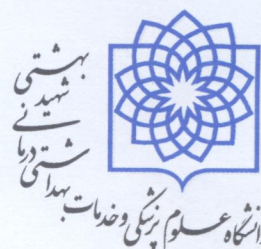 دانشگاه علوم پزشکی و خدمات
بهداشتی درمانی
شهید
بهشتی